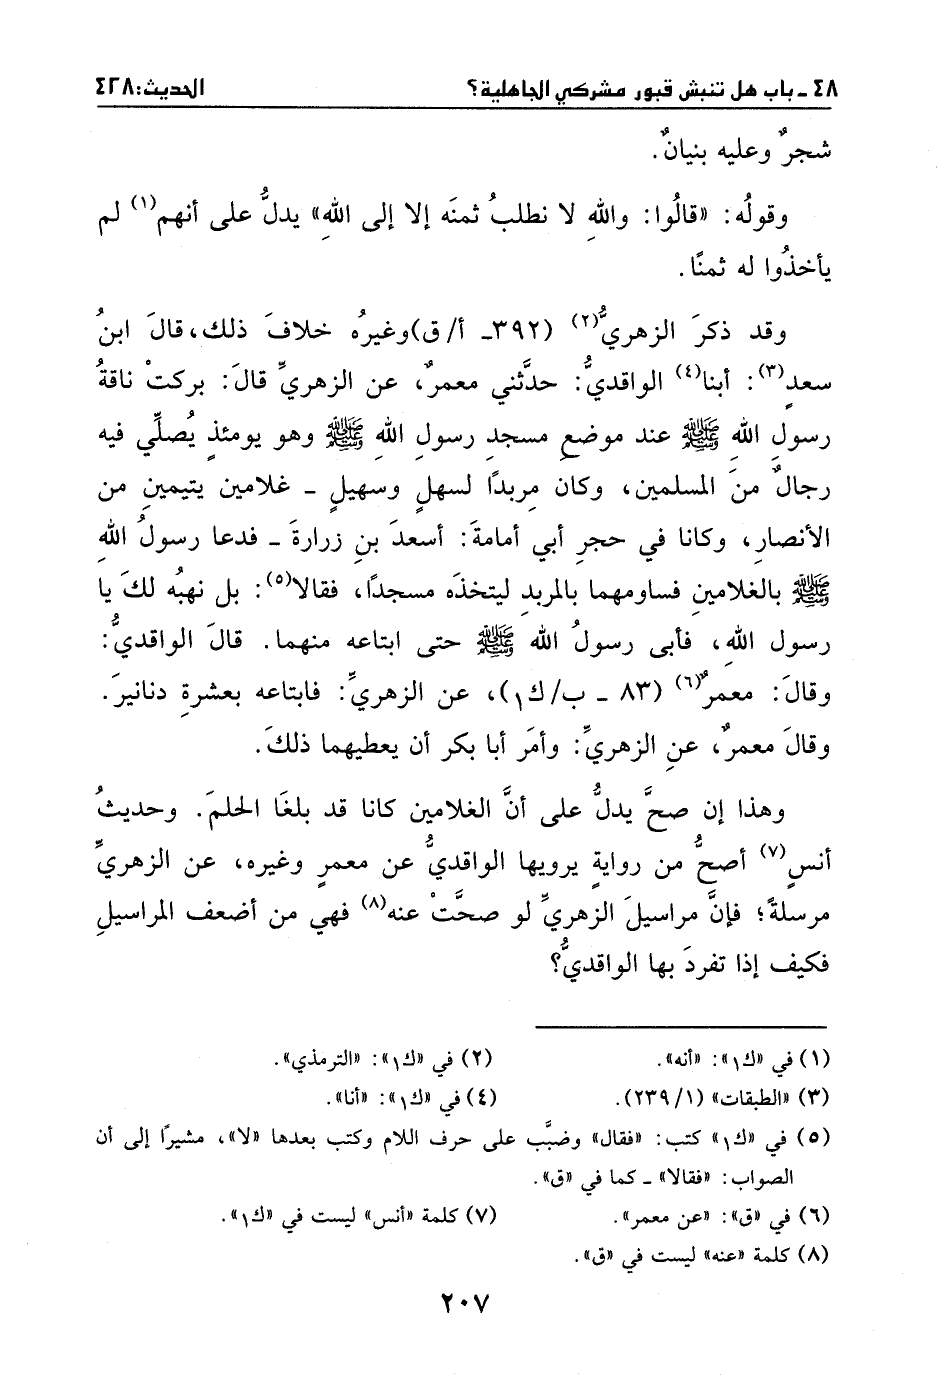 ٤٨ ـ باب هل تنبش قبور مشركي الجاهلية؟ الحديث: ٤٢٨
شجرٌ وعليه بنيانٌ.
وقولُه: «قالُوا: واللهِ لا نطلبُ ثمنَه إلا إلى اللهِ» يدلُّ على أنهم(١) لم
يأخذُوا له ثمنًا.
وقد ذكرَ الزهريُّ(٢) (٣٩٢ـ أ/ق)وغيرُه خلافَ ذلك، قالَ ابنُ
سعدٍ(٣): أبنا(٤) الواقديُّ: حدَّثني معمرٌ، عن الزهريِّ قالَ: بركتْ ناقةُ
رسولِ اللهِ ﷺ عند موضعِ مسجدِ رسولِ اللهِ ﷺ وهو يومئذٍ يُصلِّي فيه
رجالٌ منَ المسلمين، وكان مربدًا لسهلٍ وسهيلٍ ـ غلامين يتيمينِ من
الأنصارِ، وكانا في حجرِ أبي أمامةَ: أسعدَ بنِ زرارةَ ـ فدعا رسولُ اللهِ
ﷺ بالغلامينِ فساومهما بالمربدِ ليتخذَه مسجدًا، فقالا(٥): بل نهبُه لكَ يا
رسول اللهِ، فأبى رسولُ الله ﷺ حتى ابتاعه منهما. قالَ الواقديُّ:
وقالَ: معمرٌ(٦) (٨٣ ـ ب/ك١)، عن الزهريِّ: فابتاعه بعشرةِ دنانيرَ.
وقالَ معمرٌ، عنِ الزهريِّ: وأمَر أبا بكر أن يعطيهما ذلكَ.
وهذا إن صحَّ يدلُّ على أنَّ الغلامين كانا قد بلغَا الحلمَ. وحديثُ
أنسٍ(٧) أصحُّ من روايةٍ يرويها الواقديُّ عن معمرٍ وغيره، عن الزهريِّ
مرسلةً؛ فإنَّ مراسيلَ الزهريِّ لو صحَّتْ عنه(٨) فهي من أضعف المراسيلِ
فكيف إذا تفردَ بها الواقديُّ؟
(١) في «ك١»: «أنه». (٢) في «ك١»: «الترمذي».
(٣) «الطبقات» (١/ ٢٣٩). (٤) في «ك١»: «أنا».
(٥) في «ك١» كتب: «فقال» وضبَّب على حرف اللام وكتب بعدها «لا»، مشيرًا إلى أن
الصواب: «فقالا» ـ كما في «ق».
(٦) في «ق»: «عن معمر». (٧) كلمة «أنس» ليست في «ك١».
(٨) كلمة «عنه» ليست في «ق».
٢٠٧